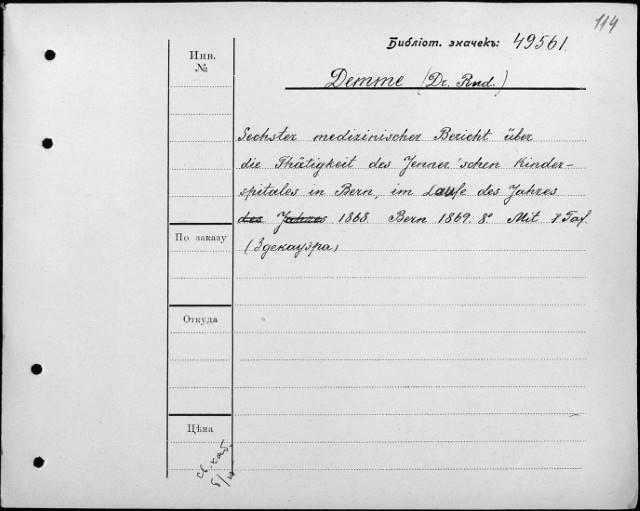 114
Библіот. значекъ: 49561.
Инв.
№
Demme (Dr. Rud.)
Sechster medizinischer Bericht über
die Thätigkeit des Jenner'schen Kinder-
spitales in Bern, im Laufe des Jahres
des Jahres 1868. Bern 1869. 8° Mit Taf.
По заказу
(Здекауэра)
Откуда
Цѣна